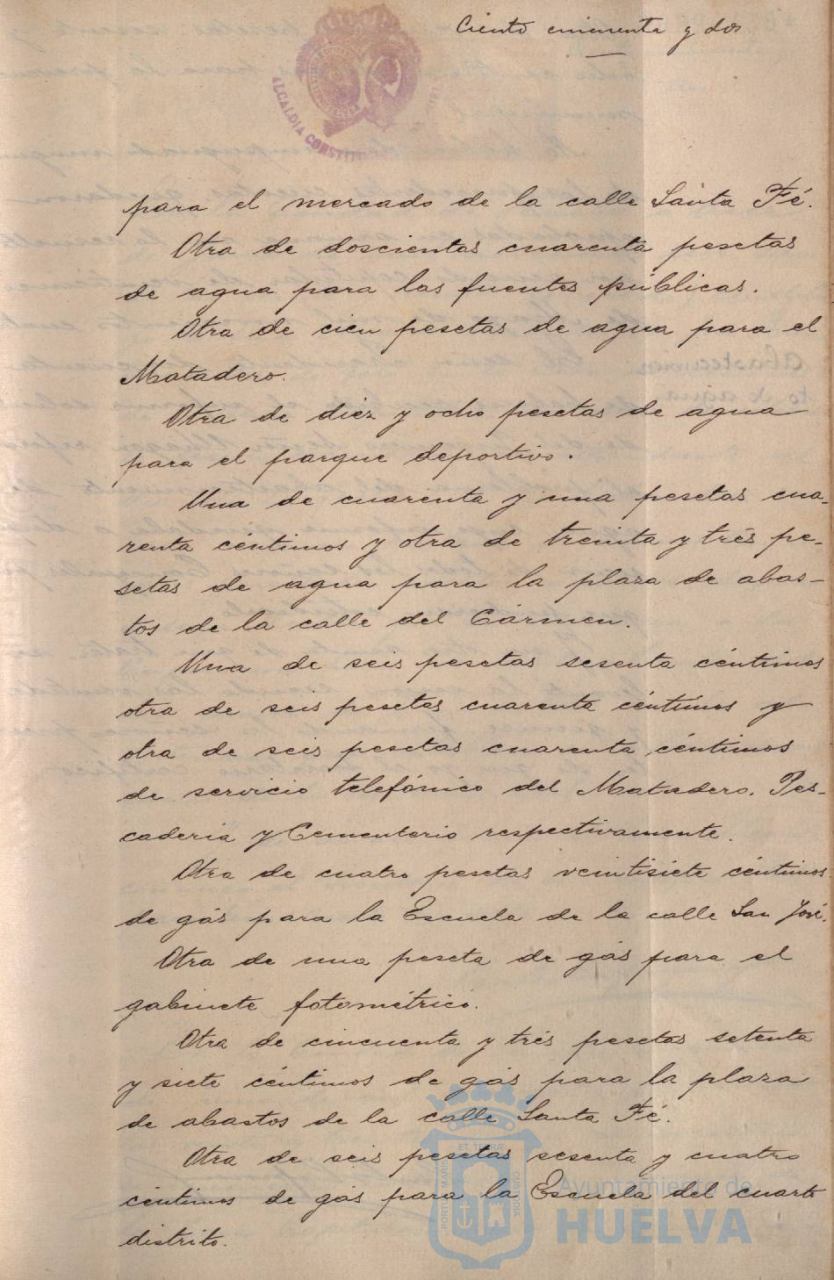 Ciento cincuenta y dos
ALCALDIA CONSTIT
para el mercado de la calle Santa Fé.
Otra de doscientas cuarenta pesetas
de agua para las fuentes públicas.
Otra de cien pesetas de agua para el
Matadero.
Otra de diez y ocho pesetas de agua
para el parque deportivo.
Una de cuarenta y una pesetas cua-
renta céntimos y otra de treinta y trés pe-
setas de agua para la plaza de abas-
tos de la calle del Cármen.
Una de seis pesetas sesenta céntimos
otra de seis pesetas cuarenta céntimos y
otra de seis pesetas cuarenta céntimos
de servicio telefónico del Matadero, Pes-
caderia y Cementerio respectivamente.
Otra de cuatro pesetas veintisiete céntimos
de gás para la Escuela de la calle San José.
Otra de una peseta de gás para el
gabinete fotométrico.
Otra de cincuenta y trés pesetas setenta
y siete céntimos de gás para la plaza
de abastos de la calle Santa Fé.
Otra de seis pesetas sesenta y cuatro
céntimos de gás para la Escuela del cuarto
distrito.
Ayuntamiento de
HUELVA